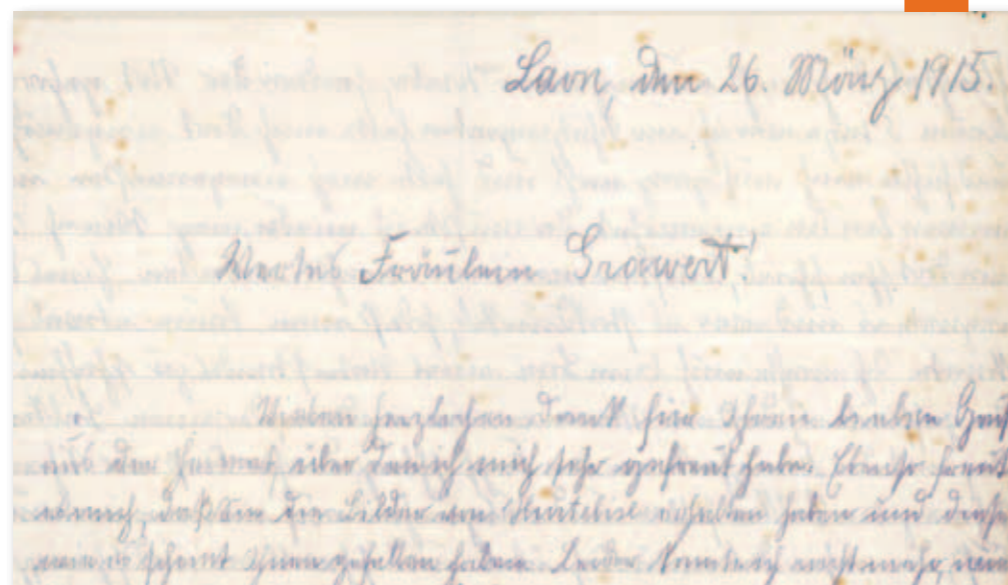 Laon, den 26. März 1915.
Wertes Fräulein Grawert!
Vielen herzlichen Dank für Ihren lieben
aus der Heimat über den ich mich sehr gefreut habe. Ebenso freut
es mich, daß Sie die Bilder von erhalten haben und diese
wie es scheint Ihnen gefallen haben. Leider konnte ich nicht mehr